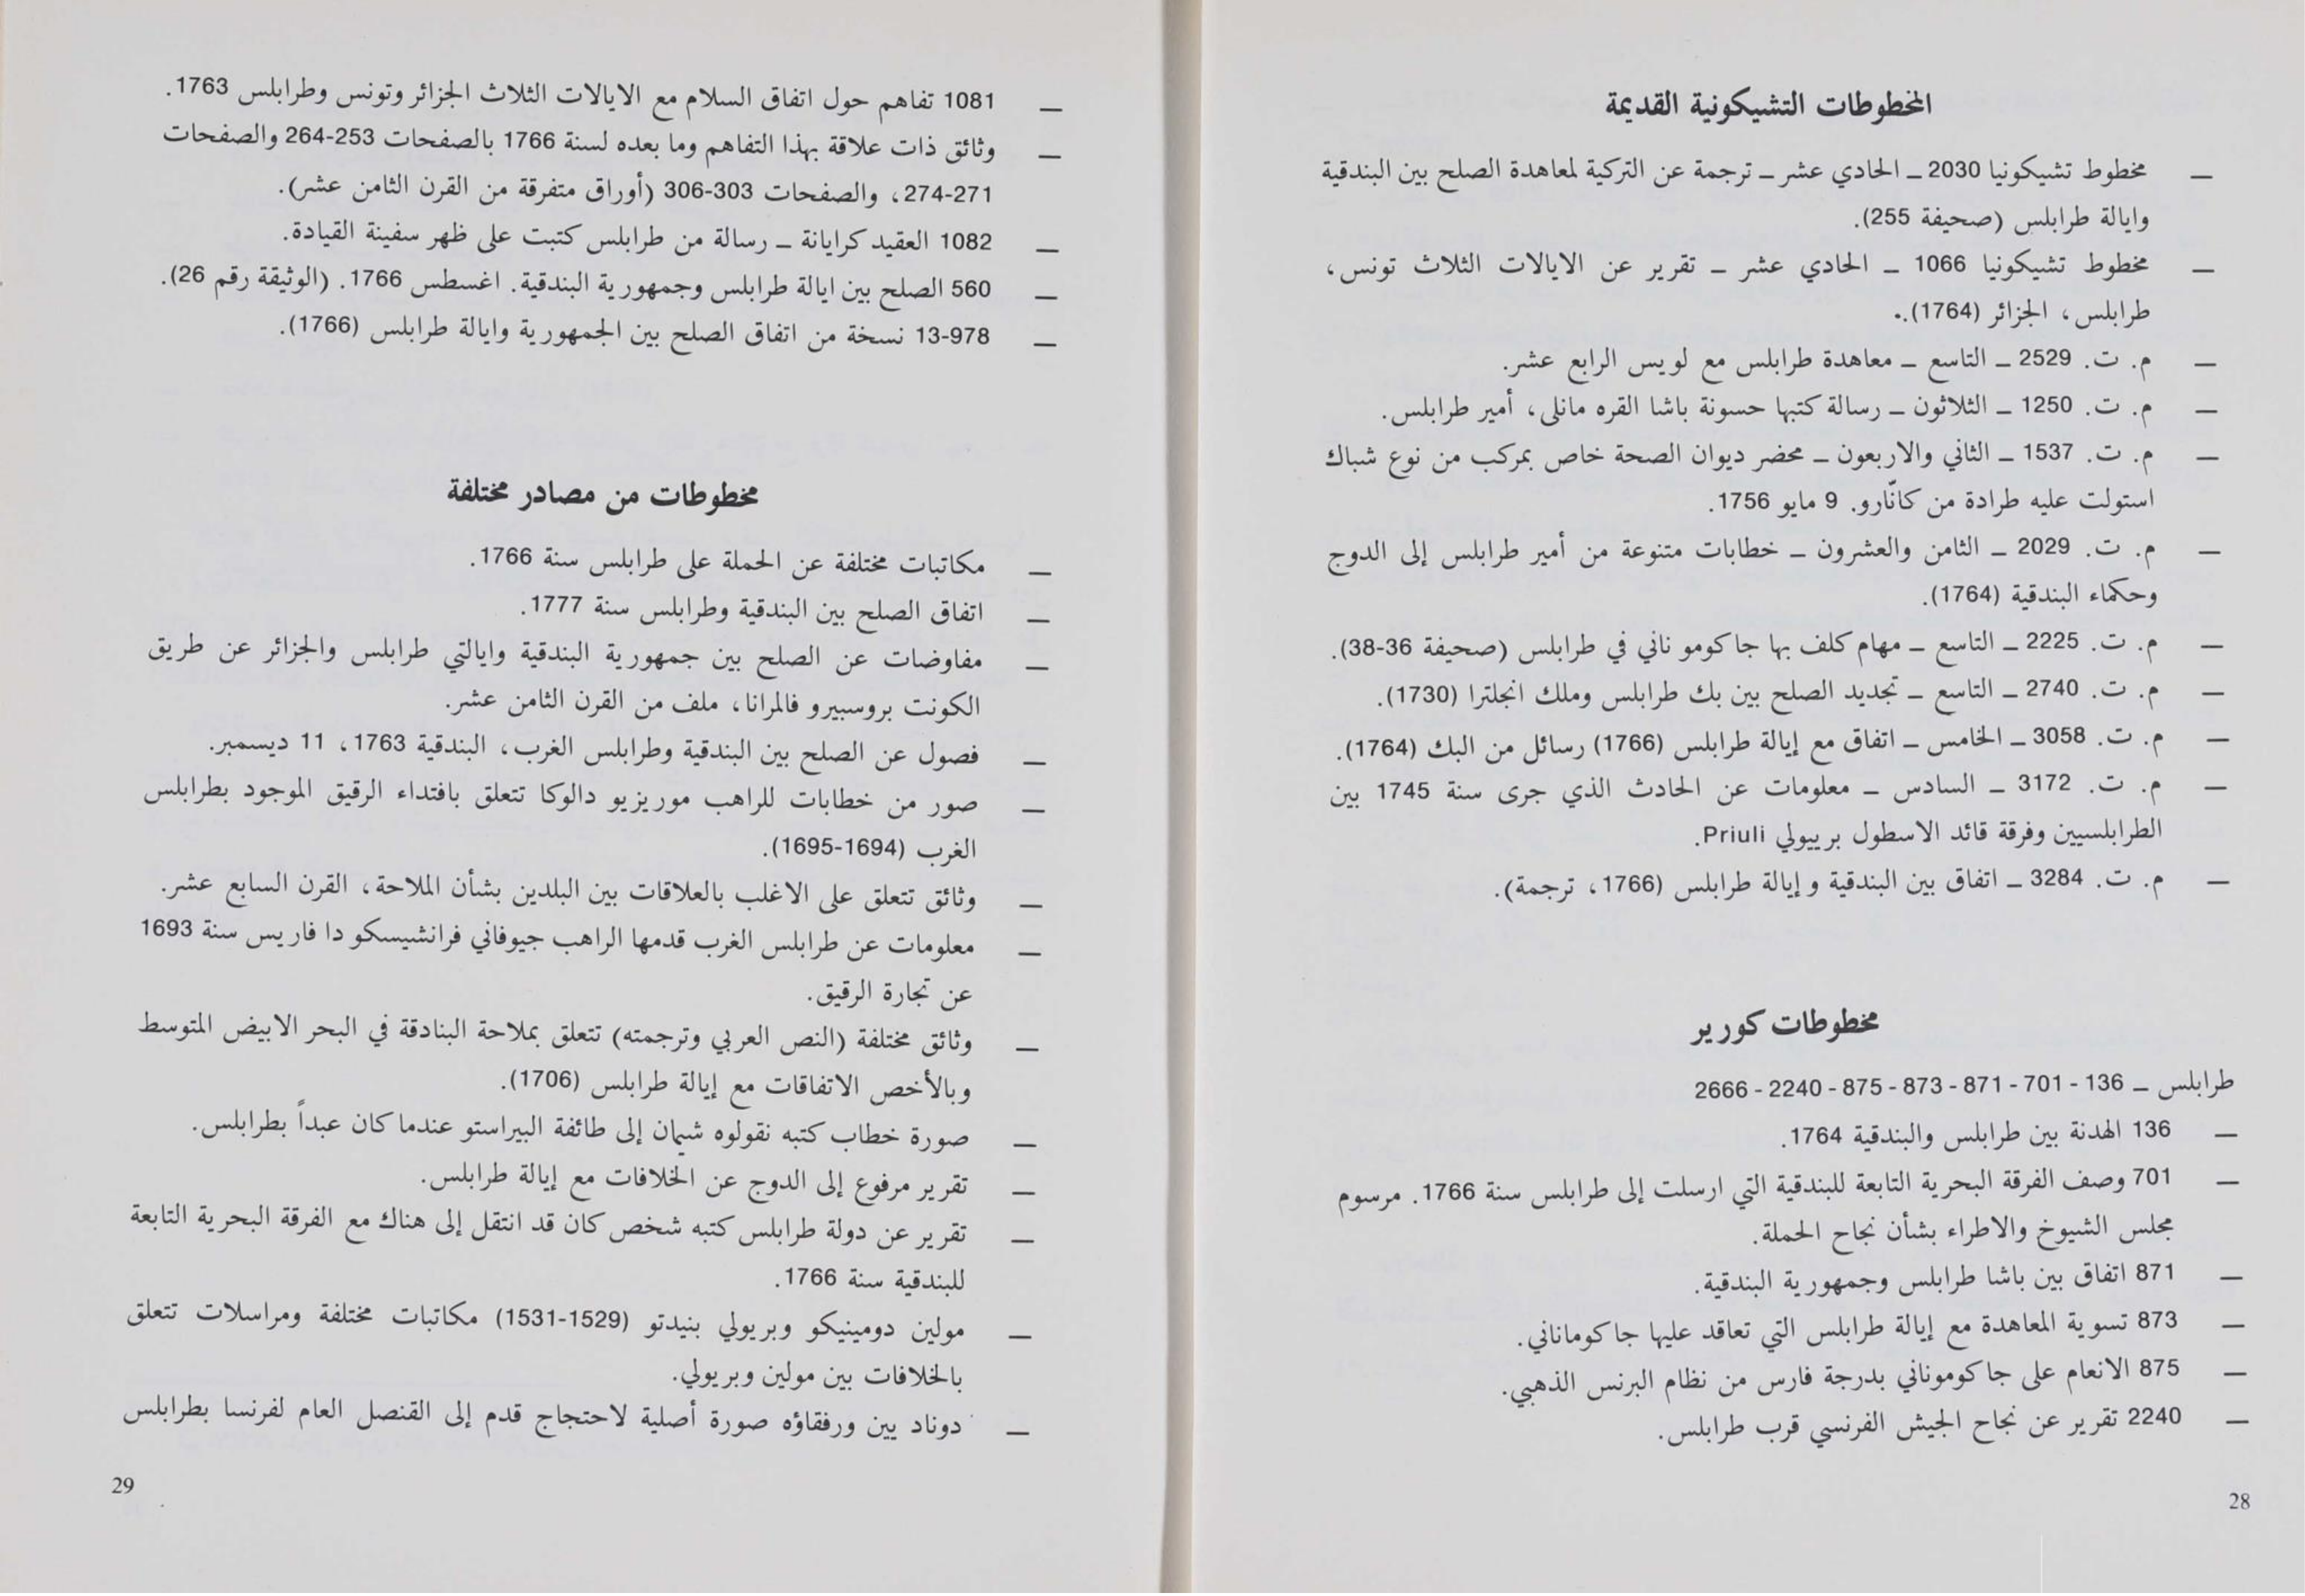 المخطوطات التشيكونية القديمة
— مخطوط تشيكونيا 2030 – الحادي عشر – ترجمة عن التركية لمعاهدة الصلح بين البندقية
وايالة طرابلس (صحيفة 255).
— مخطوط تشيكونيا 1066 – الحادي عشر – تقرير عن الايالات الثلاث تونس،
طرابلس، الجزائر (1764).
— م. ت. 2529 – التاسع – معاهدة طرابلس مع لويس الرابع عشر.
— م. ت. 1250 – الثلاثون – رسالة كتبها حسونة باشا القره مانلى، أمير طرابلس.
— م. ت. 1537 – الثاني والاربعون – محضر ديوان الصحة خاص بمركب من نوع شباك
استولت عليه طرادة من كانّارو. 9 مايو 1756.
— م. ت. 2029 – الثامن والعشرون – خطابات متنوعة من أمير طرابلس إلى الدوج
وحكماء البندقية (1764).
— م. ت. 2225 – التاسع – مهام كلف بها جاكومو ناني في طرابلس (صحيفة 36-38).
— م. ت. 2740 – التاسع – تجديد الصلح بين بك طرابلس وملك انجلترا (1730).
— م. ت. 3058 – الخامس – اتفاق مع إيالة طرابلس (1766) رسائل من البك (1764).
— م. ت. 3172 – السادس – معلومات عن الحادث الذي جرى سنة 1745 بين
الطرابلسيين وفرقة قائد الاسطول برييولي Priuli.
— م. ت. 3284 – اتفاق بين البندقية وإيالة طرابلس (1766، ترجمة).
مخطوطات كورير
طرابلس – 136 - 701 - 871 - 873 - 875 - 2240 - 2666
— 136 الهدنة بين طرابلس والبندقية 1764.
— 701 وصف الفرقة البحرية التابعة للبندقية التي ارسلت إلى طرابلس سنة 1766. مرسوم
مجلس الشيوخ والاطراء بشأن نجاح الحملة.
— 871 اتفاق بين باشا طرابلس وجمهورية البندقية.
— 873 تسوية المعاهدة مع إيالة طرابلس التي تعاقد عليها جاكوماناني.
— 875 الانعام على جاكوموناني بدرجة فارس من نظام البرنس الذهبي.
— 2240 تقرير عن نجاح الجيش الفرنسي قرب طرابلس.
28
— 1081 تفاهم حول اتفاق السلام مع الايالات الثلاث الجزائر وتونس وطرابلس 1763.
— وثائق ذات علاقة بهذا التفاهم وما بعده لسنة 1766 بالصفحات 253-264 والصفحات
271-274، والصفحات 303-306 (أوراق متفرقة من القرن الثامن عشر).
— 1082 العقيد كرايانة – رسالة من طرابلس كتبت على ظهر سفينة القيادة.
— 560 الصلح بين ايالة طرابلس وجمهورية البندقية. اغسطس 1766. (الوثيقة رقم 26).
— 978-13 نسخة من اتفاق الصلح بين الجمهورية وايالة طرابلس (1766).
مخطوطات من مصادر مختلفة
— مكاتبات مختلفة عن الحملة على طرابلس سنة 1766.
— اتفاق الصلح بين البندقية وطرابلس سنة 1777.
— مفاوضات عن الصلح بين جمهورية البندقية وايالتي طرابلس والجزائر عن طريق
الكونت بروسبيرو فالمرانا، ملف من القرن الثامن عشر.
— فصول عن الصلح بين البندقية وطرابلس الغرب، البندقية 1763، 11 ديسمبر.
— صور من خطابات للراهب موريزيو دالوكا تتعلق بافتداء الرقيق الموجود بطرابلس
الغرب (1694-1695).
— وثائق تتعلق على الاغلب بالعلاقات بين البلدين بشأن الملاحة، القرن السابع عشر.
— معلومات عن طرابلس الغرب قدمها الراهب جيوفاني فرانشيسكو دا فاريس سنة 1693
عن تجارة الرقيق.
— وثائق مختلفة (النص العربي وترجمته) تتعلق بملاحة البنادقة في البحر الابيض المتوسط
وبالأخص الاتفاقات مع إيالة طرابلس (1706).
— صورة خطاب كتبه نقولوه شيمان إلى طائفة البيراستو عندما كان عبداً بطرابلس.
— تقرير مرفوع إلى الدوج عن الخلافات مع إيالة طرابلس.
— تقرير عن دولة طرابلس كتبه شخص كان قد انتقل إلى هناك مع الفرقة البحرية التابعة
للبندقية سنة 1766.
— مولين دومينيكو وبريولي بنيدتو (1529-1531) مكاتبات مختلفة ومراسلات تتعلق
بالخلافات بين مولين وبريولي.
— دوناد يين ورفقاؤه صورة أصلية لاحتجاج قدم إلى القنصل العام لفرنسا بطرابلس
29